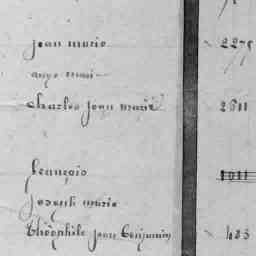 jean marie 2275
ange marie
Charles jean marie 2611
françois 1011
Joseph marie
Théophile jean Benjamin 483